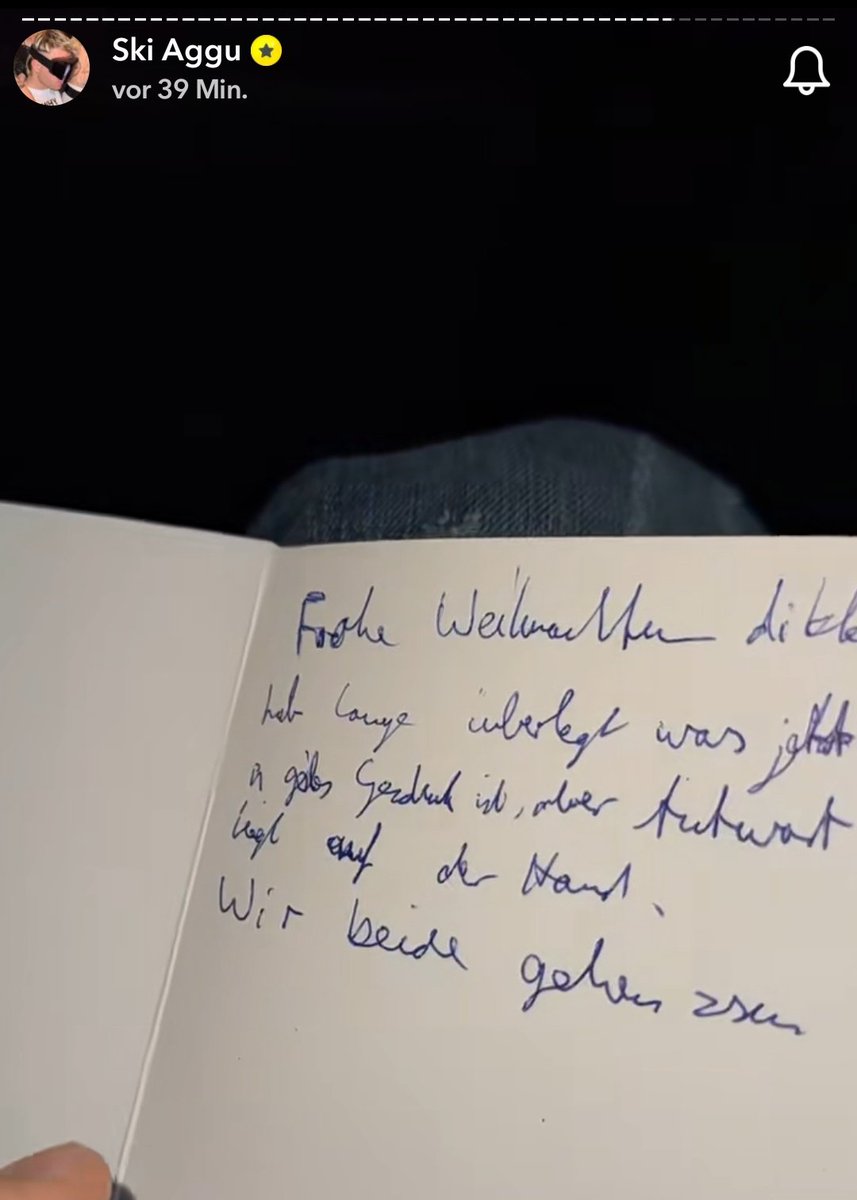 Ski Aggu
vor 39 Min.
Frohe Weihnachten
hab lange überlegt was jetzt
n geiles ist, aber Antwort
liegt auf der Hand.
Wir beide gehen zsm